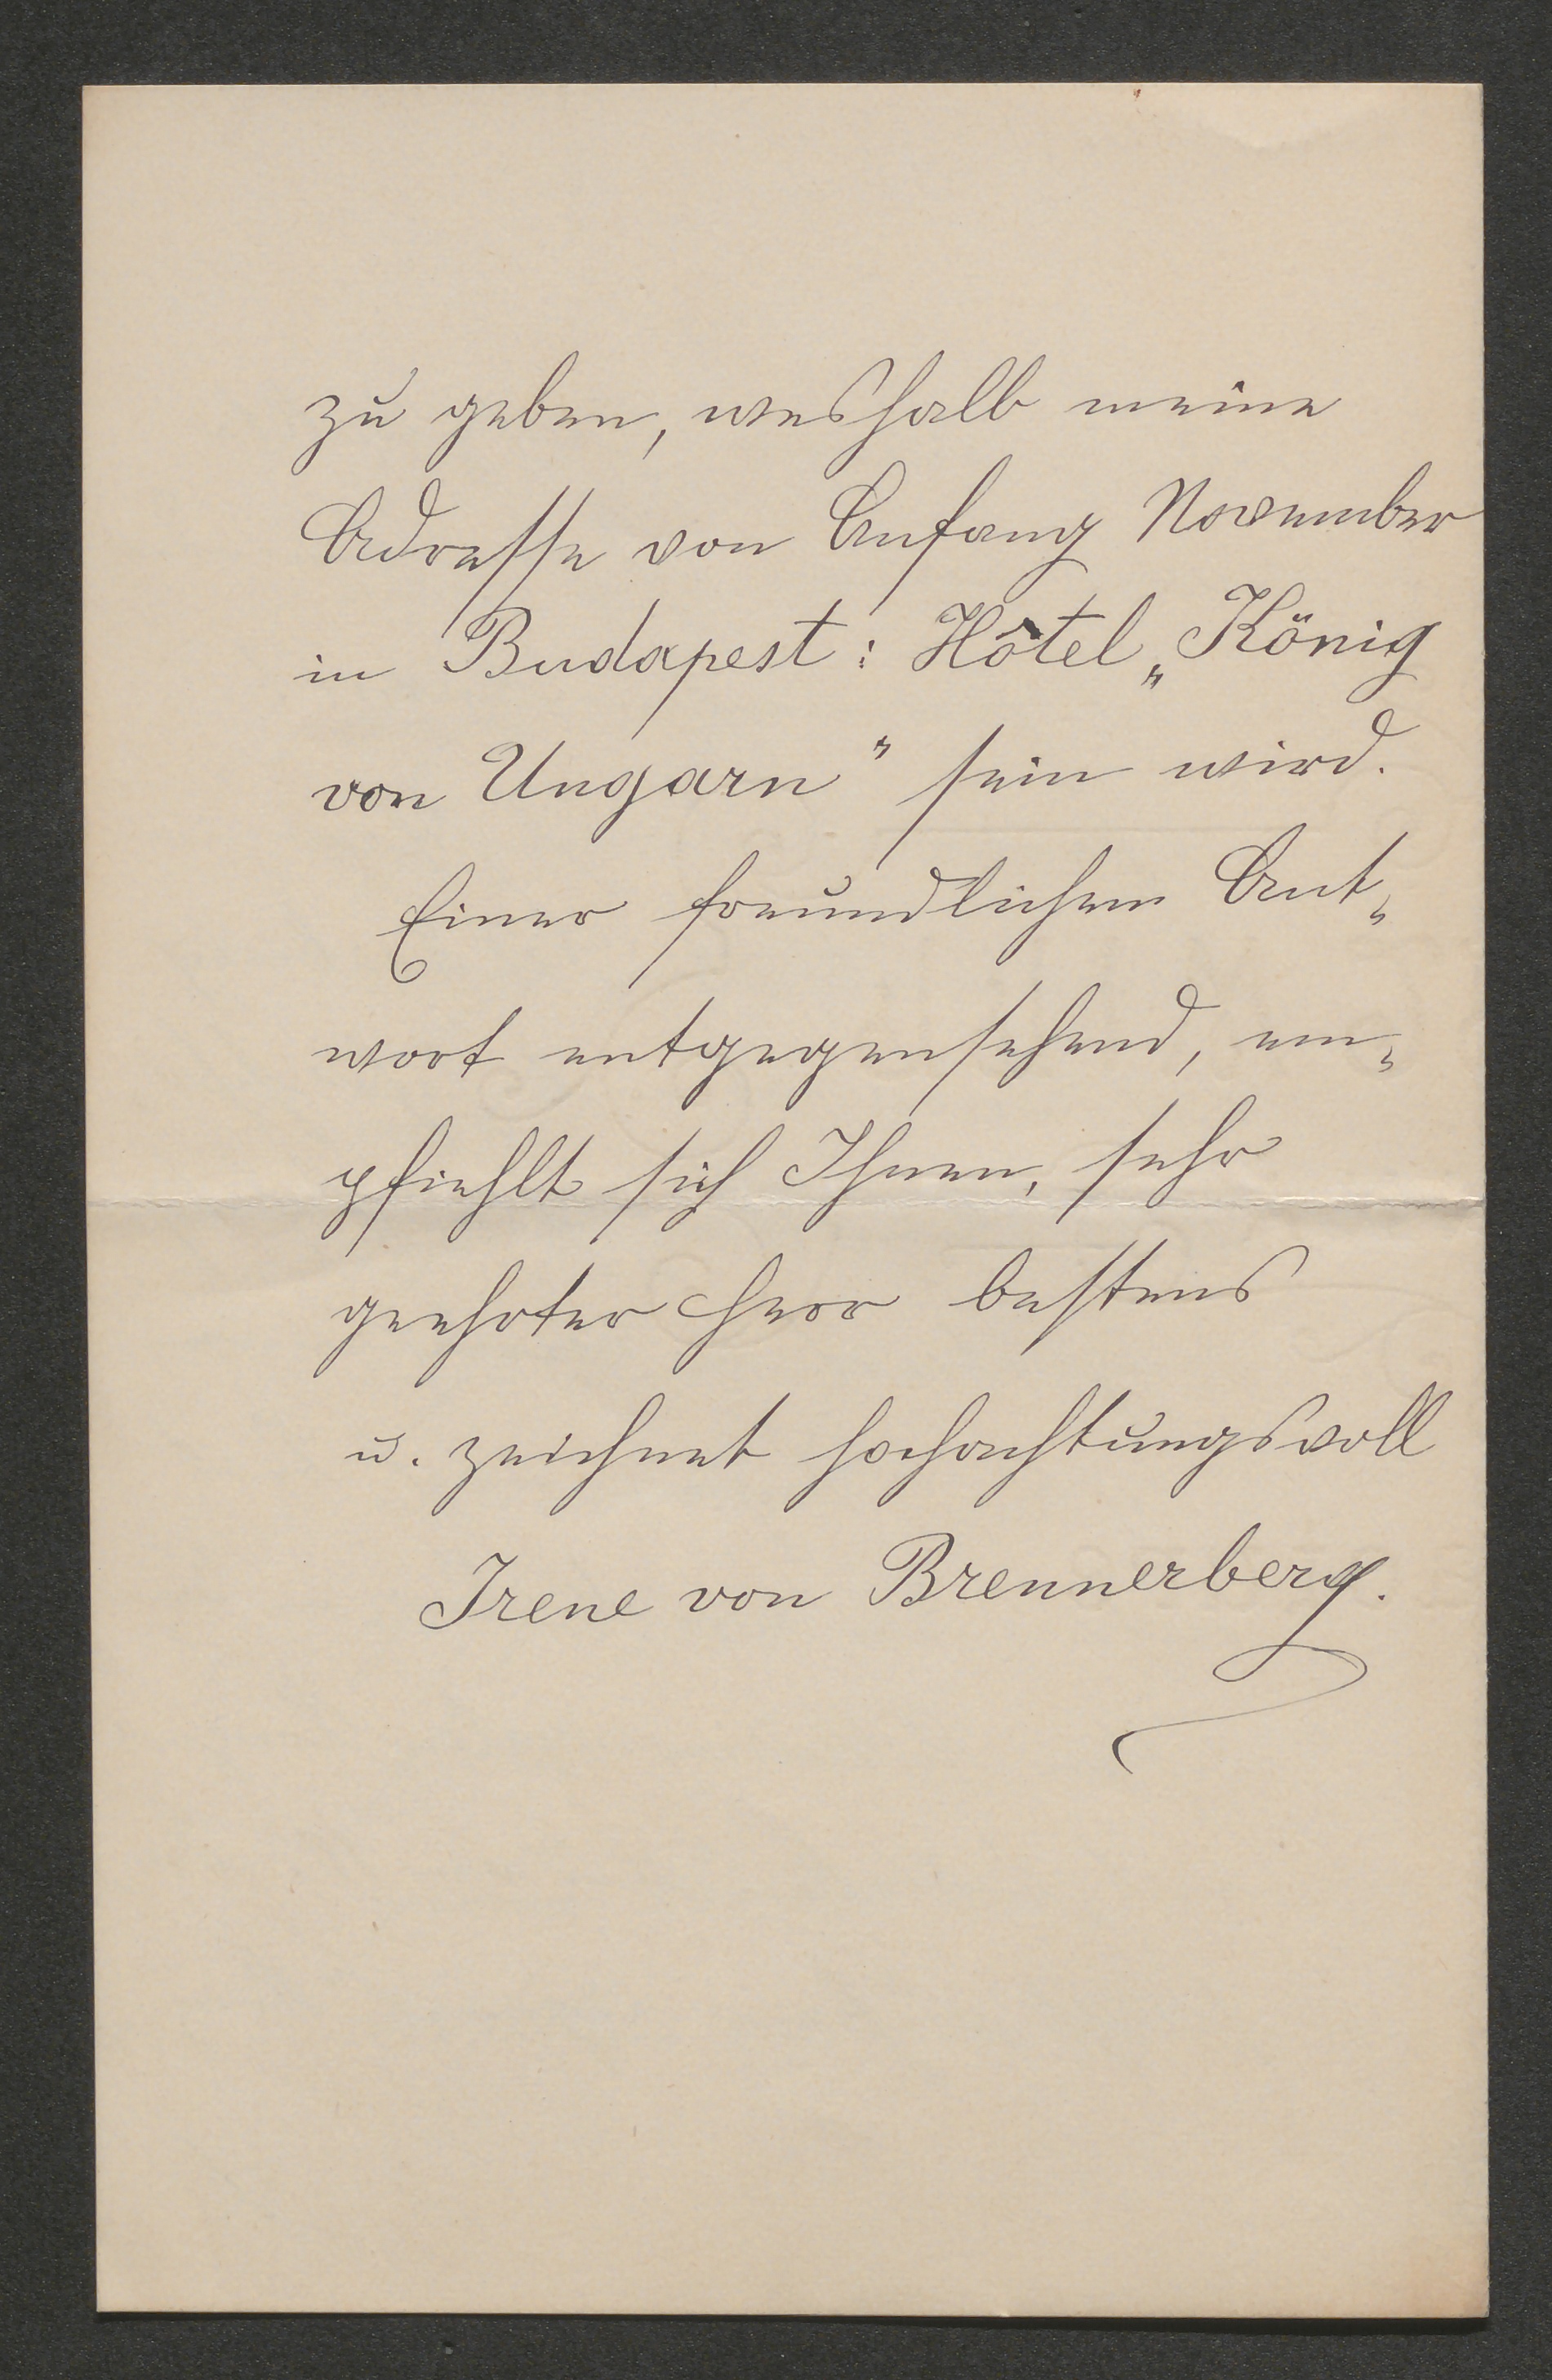 zu geben, weshalb meine
Adresse von Anfang November
in Budapest: Hôtel „König
von Ungarn“ sein wird.
Einer freundlichen Ant„
wort entgegensehend, em„
pfiehlt sich Ihnen, sehr
geehrter Herr bestens
u. zeichnet hochachtungsvoll
Irene von Brennerberg.